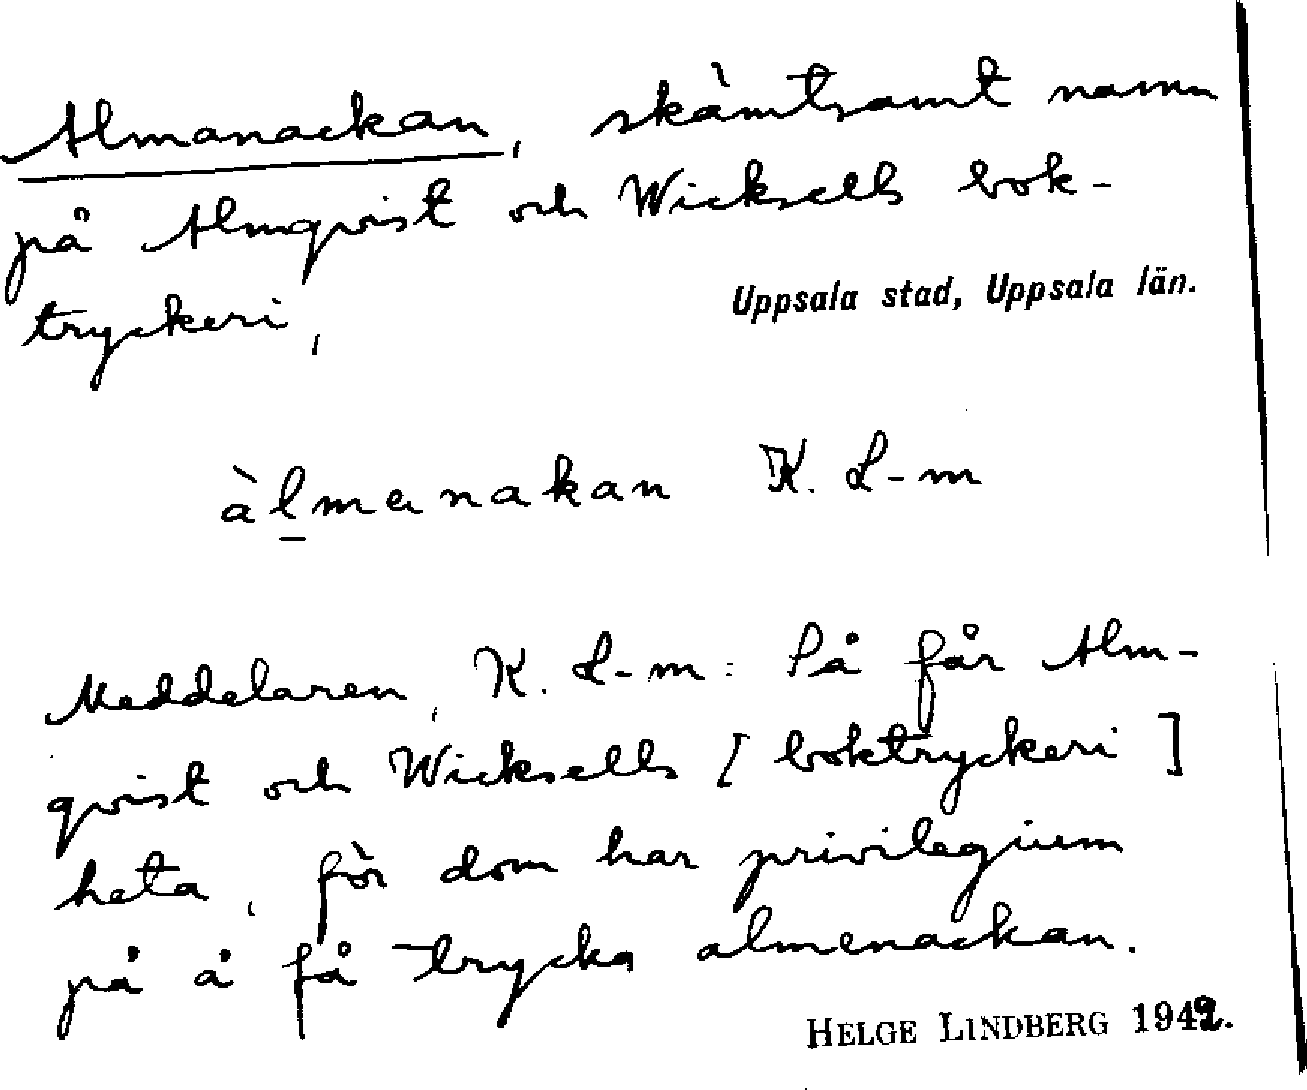 Almanackan, skämtsamt namn
på Almqvist och Wicksells bok-
tryckeri,
Uppsala stad, Uppsala län.
àlmanakan K. L-m
Meddelaren, K. L-m: Så får Alm-
qvist och Wicksells [boktryckeri]
heta, för dom har privilegium
på å få trycka almenackan.
HELGE LINDBERG 1942.